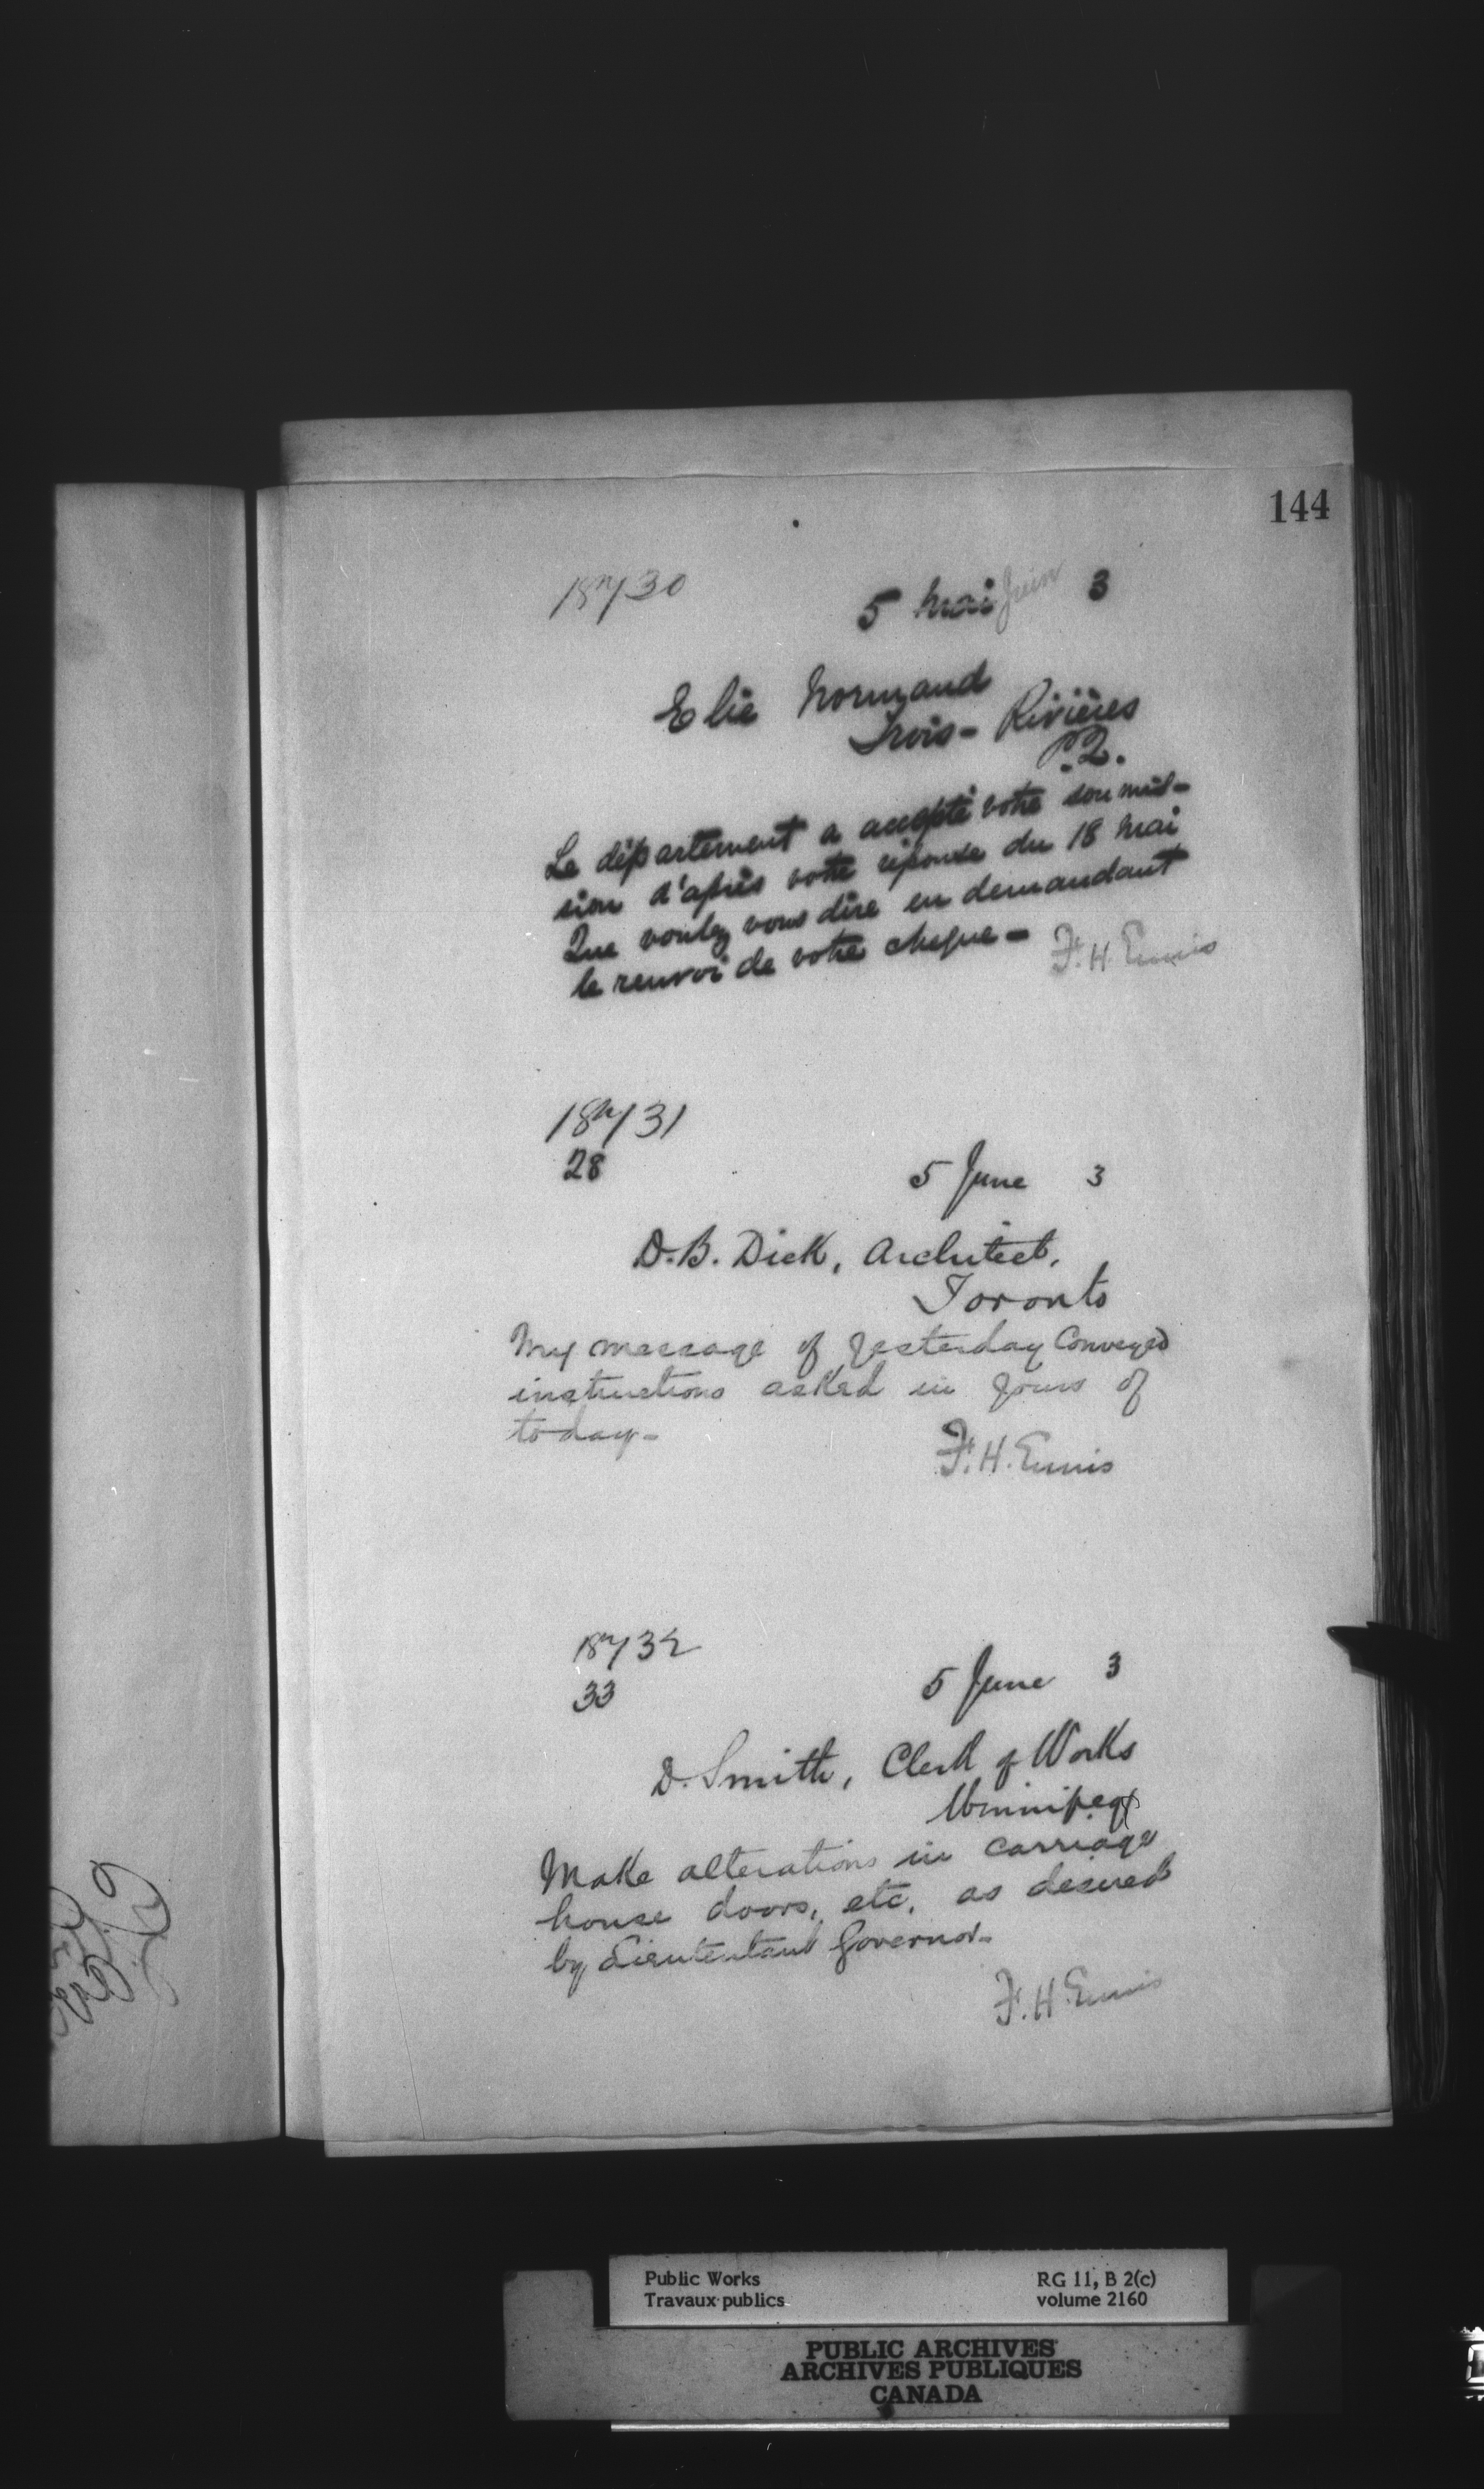 144
18730
5 Mai Juin 3
Elie Normand
Trois-Rivières
P.Q.
Le département a accepté votre soumis-
sion d'après votre réponse du 18 Mai
Que voulez vous dire en demandant
le renvoi de votre cheque -
F. H. Ennis
18731
28
5 June 3
D. B. Dick, Architect,
Toronto
My message of yesterday Conveyed
instructions asked in yours of
to day -
F. H. Ennis
18732
33
5 June 3
D. Smith, Clerk of Works
Winnipeg
Make alterations in carriage
house doors, etc. as desired
by Lieutenant Governor -
F. H. Ennis
Public Works
Travaux publics
RG 11, B 2(c)
volume 2160
PUBLIC ARCHIVES
ARCHIVES PUBLIQUES
CANADA